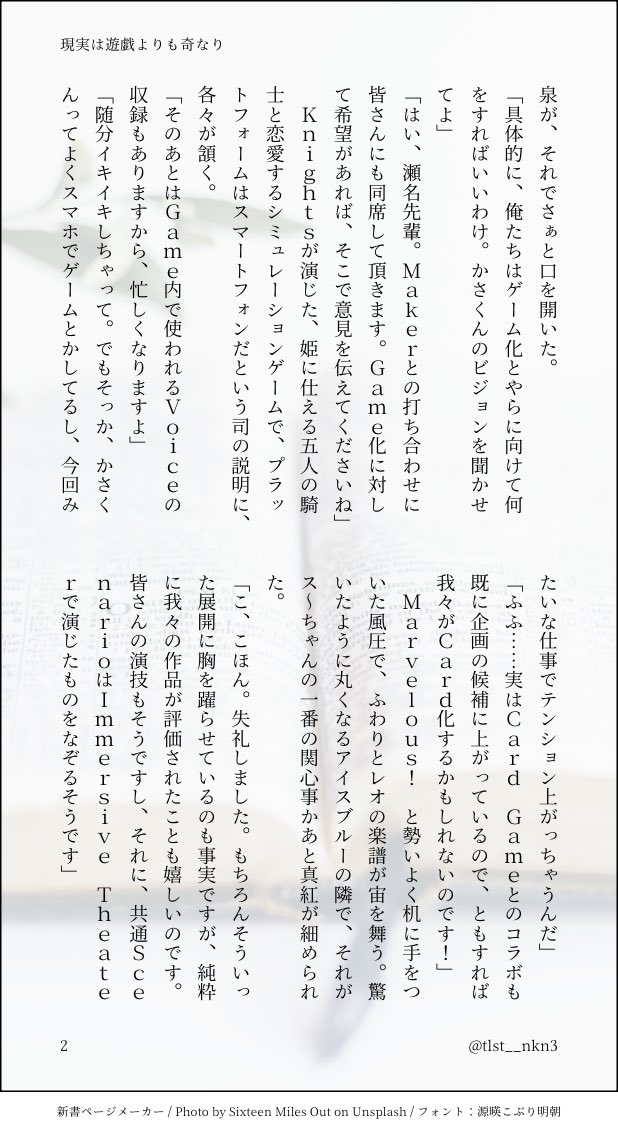 現実は遊戯よりも奇なり
泉が、それでさぁと口を開いた。
「具体的に、俺たちはゲーム化とやらに向けて何
をすればいいわけ。かさくんのビジョンを聞かせ
てよ」
「はい、瀬名先輩。Makerとの打ち合わせに
皆さんにも同席して頂きます。Game化に対し
て希望があれば、そこで意見を伝えてくださいね」
　Knightsが演じた、姫に仕える五人の騎
士と恋愛するシミュレーションゲームで、プラッ
トフォームはスマートフォンだという司の説明に、
各々が頷く。
「そのあとはGame内で使われるVoiceの
収録もありますから、忙しくなりますよ」
「随分イキイキしちゃって。でもそっか、かさく
んってよくスマホでゲームとかしてるし、今回み
たいな仕事でテンション上がっちゃうんだ」
「ふふ……実はCard　Gameとのコラボも
既に企画の候補に上がっているので、ともすれば
我々がCard化するかもしれないのです！」
　Marvelous！　と勢いよく机に手をつ
いた風圧で、ふわりとレオの楽譜が宙を舞う。驚
いたように丸くなるアイスブルーの隣で、それが
ス～ちゃんの一番の関心事かあと真紅が細められ
た。
「こ、こほん。失礼しました。もちろんそういっ
た展開に胸を躍らせているのも事実ですが、純粋
に我々の作品が評価されたことも嬉しいのです。
皆さんの演技もそうですし、それに、共通Sce
narioはImmersive　Theate
rで演じたものをなぞるそうです」
2
@tlst__nkn3
新書ページメーカー / Photo by Sixteen Miles Out on Unsplash / フォント：源暎こぶり明朝